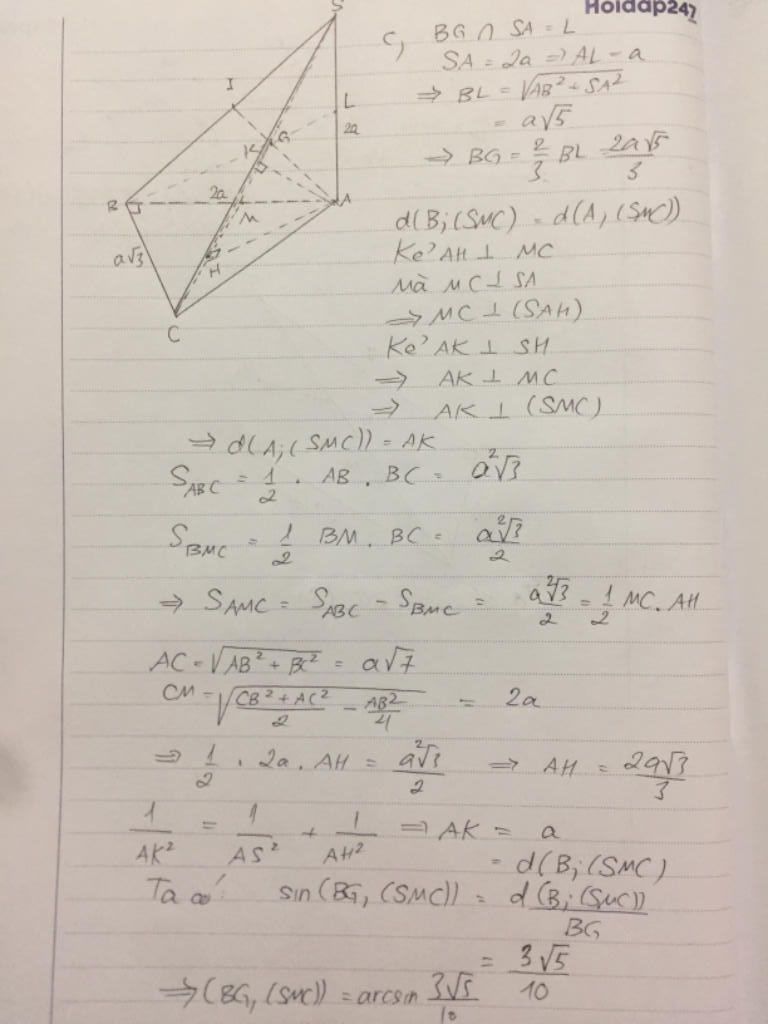 Hoidap247
S
I
L
K
G
2a
B
2a
M
A
a√3
H
C
c, BG ∩ SA = L
SA = 2a ⇒ AL = a
⇒ BL = √(AB² + SA²)
= a√5
⇒ BG = 2/3 BL 2a√5/3
d(B;(SMC) = d(A,(SMC))
Kẻ AH ⊥ MC
Mà MC ⊥ SA
⇒ MC ⊥ (SAH)
Kẻ AK ⊥ SH
⇒ AK ⊥ MC
⇒ AK ⊥ (SMC)
⇒ d(A;(SMC)) = AK
S_ABC = 1/2 . AB . BC = a²√3
S_BMC = 1/2 BM . BC = a²√3/2
⇒ S_AMC = S_ABC - S_BMC = a²√3/2 = 1/2 MC. AH
AC = √(AB² + BC²) = a√7
CM = √((CB² + AC²)/2 - AB²/4) = 2a
⇒ 1/2 . 2a . AH = a²√3/2 ⇒ AH = 2a√3/3
1/AK² = 1/AS² + 1/AH² ⇒ AK = a
= d(B;(SMC)
Ta có sin(BG, (SMC)) = d(B;(SMC))/BG
= 3√5/10
⇒ (BG, (SMC)) = arcsin 3√5/10